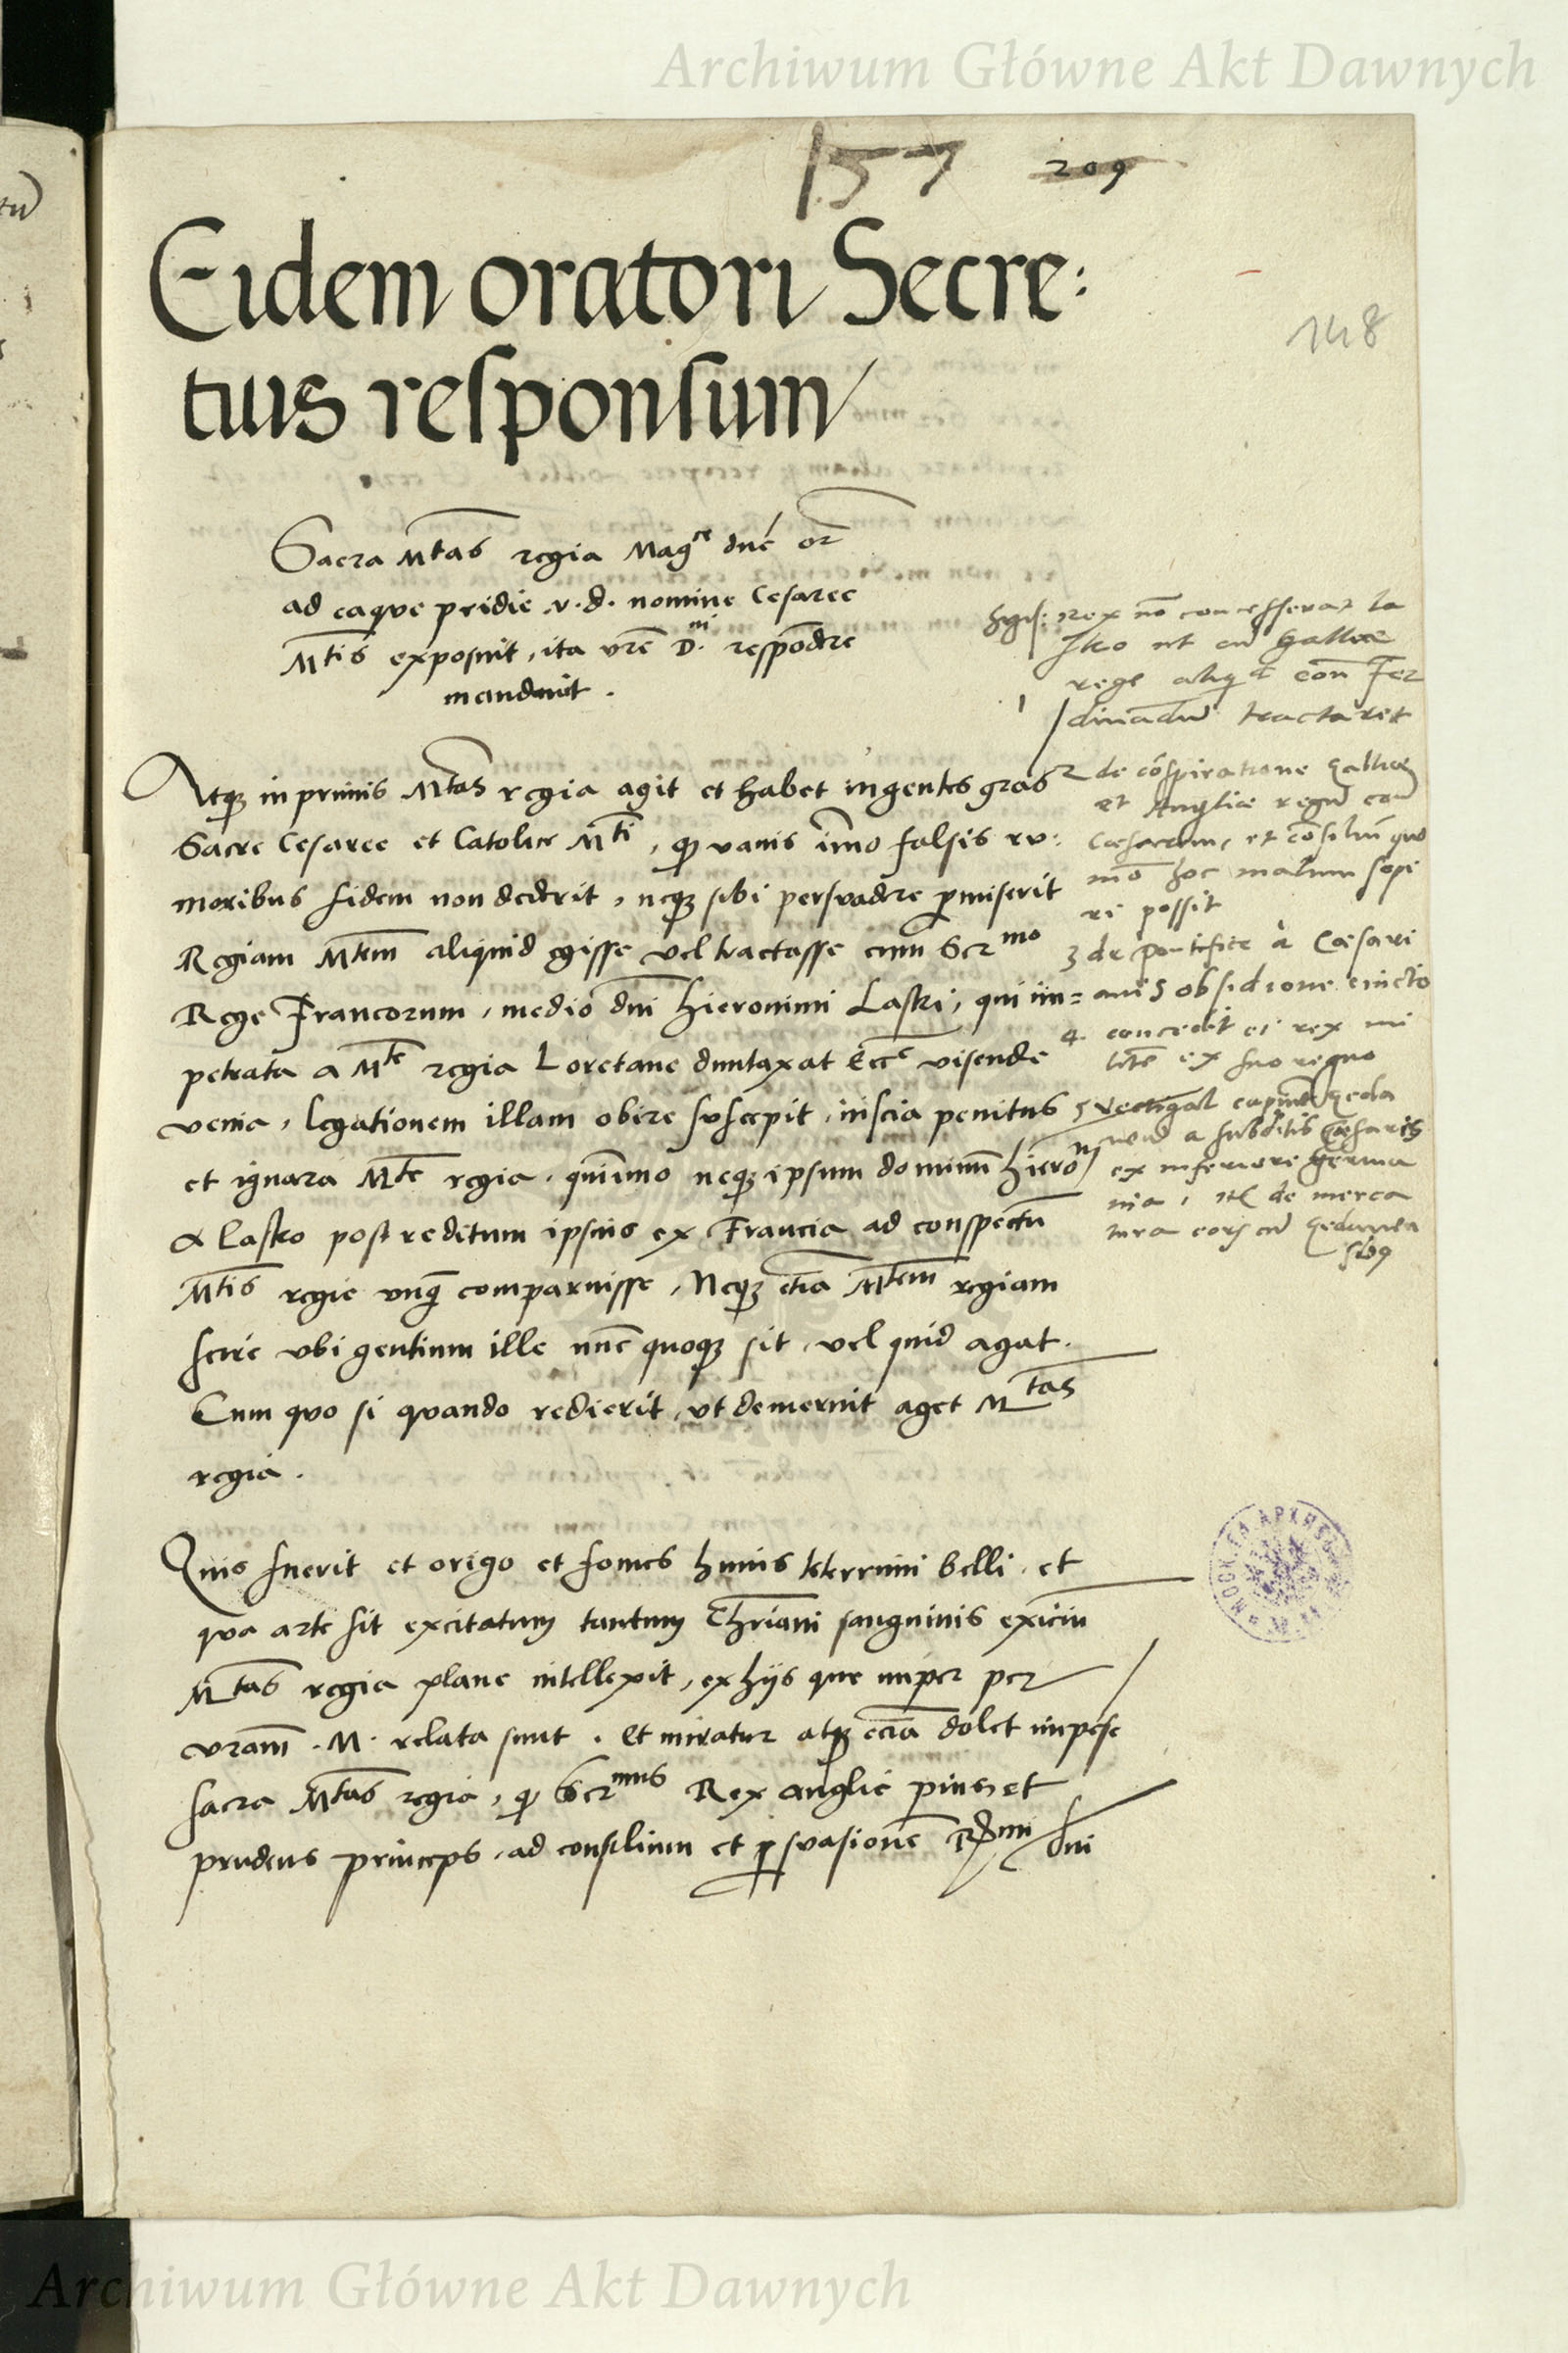 Archiwum Główne Akt Dawnych
157 209
148
Eidem oratori Secre:
tius responsum
Sacra Mtas regia Magce dne or
ad eaque pridie v. d. nomine Cesaree
Mtis exposuit, ita vre D. ni respondere
mandavit.
Atque in primis Mtas regia agit et habet ingentes gras
Sacre Cesaree et Catolice Mti, quod vanis imo falsis ru:
moribus fidem non dederit, neque sibi persuadere permiserit
Regiam Mtem aliquid egisse vel tractasse cum Sermo
Rege Francorum, medio dni Hieronimi Laski, qui im=
petrata a Mte regia Loretane duntaxat Eccle visende
venia, legationem illam obire suscepit, inscia penitus
et ignara Mte regia. quinimo neque ipsum dominum Hieronim
a Lasko post reditum ipsius ex Francia ad conspectu
Mtis regie unq comparuisse, Neque etia Mtem regiam
scire ubi gentium ille nunc quoque sit, vel quid agat.
Cum quo si quando redierit, ut demeruit aget Mtas
regia.
Quis fuerit et origo et fomes huius teterrimi belli, et
qua arte sit excitatum tantum Christiani sanguinis exiciu
Mtas regia plane intellexit, ex hijs que nuper per
vram. M. relata sunt. Et miratur atque ecia dolet impese
sacra Mtas regia, quod Sermus Rex anglie pius et
prudens princeps, ad consilium et persuasione Rdmi dni
rex no concesserat La
sko ut cu Galliae
rege aliqd con Fer
1 dinadu tractaret
2 de cospiratione Galliae
et Angliae regu con
Caesarem, et consiliu quo
mo hoc malum sopi
ri possit
3 de pontifice à Caesari
anis obsidione evicto
4 concedit ei rex mi
lite ex suo regno
5 Vectigal capiunt Geda
a subditis Caesaris
ex inferiore Germa
nia, ite de merca
tura eorum cu Gedanen
sibq
Archiwum Główne Akt Dawnych